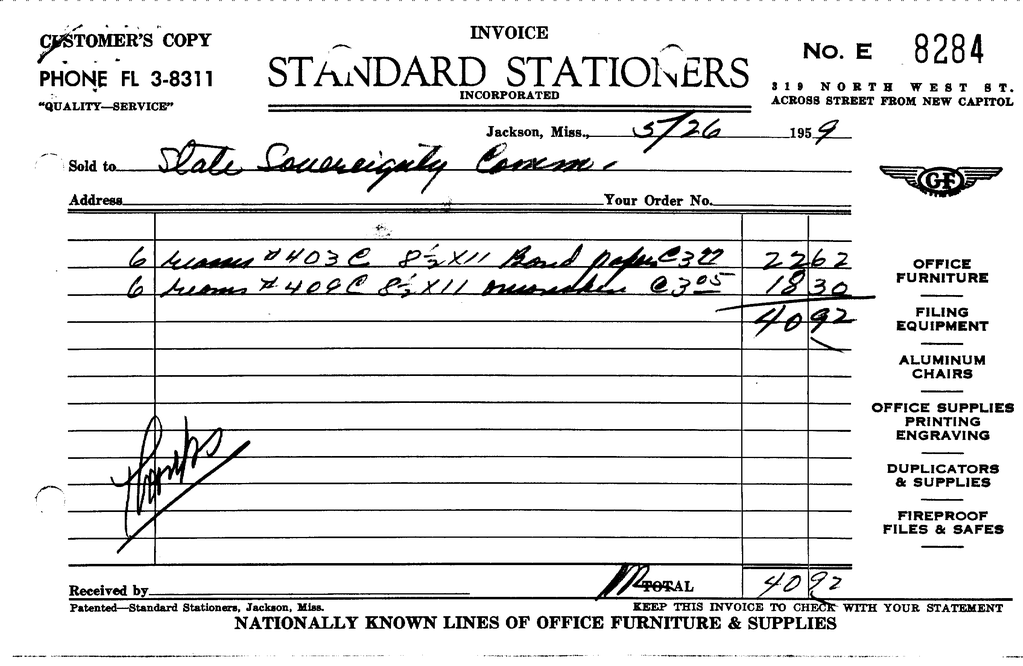 CUSTOMER'S COPY
INVOICE
No. E 8284
PHONE FL 3-8311
STANDARD STATIONERS
"QUALITY—SERVICE"
INCORPORATED
319 NORTH WEST ST.
ACROSS STREET FROM NEW CAPITOL
Jackson, Miss., 5/26 1959
Sold to State Sovereignty Comm.
Address Your Order No.
6 reams #403 C 8½ X 11 Bond paper @ 3 77 22 62
6 reams #409 C 8½ X 11 onionskin @ 3 05 18 30
40 92
Thanks
OFFICE
FURNITURE
FILING
EQUIPMENT
ALUMINUM
CHAIRS
OFFICE SUPPLIES
PRINTING
ENGRAVING
DUPLICATORS
& SUPPLIES
FIREPROOF
FILES & SAFES
GF
Received by TOTAL 40 92
Patented—Standard Stationers, Jackson, Miss. KEEP THIS INVOICE TO CHECK WITH YOUR STATEMENT
NATIONALLY KNOWN LINES OF OFFICE FURNITURE & SUPPLIES